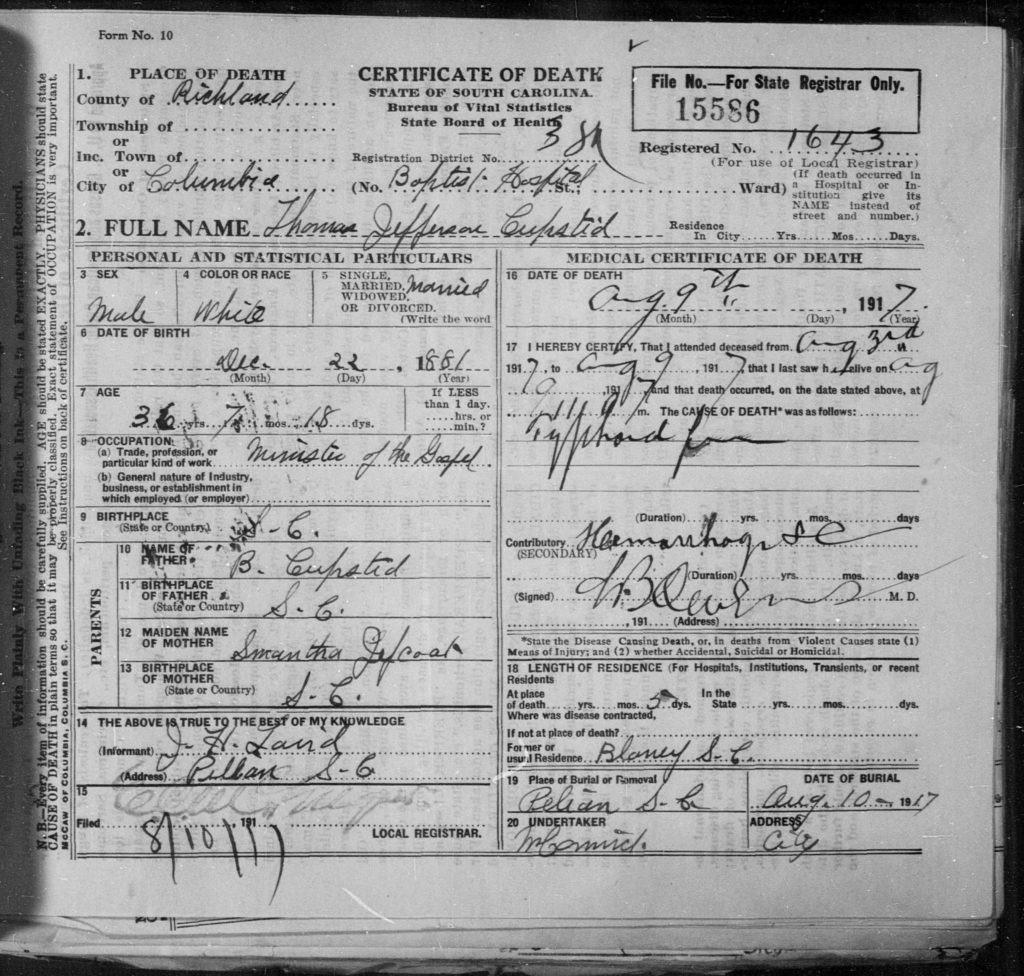 Form No. 10
1. PLACE OF DEATH
County of Richland
Township of
or
Inc. Town of
or
City of Columbia
CERTIFICATE OF DEATH
STATE OF SOUTH CAROLINA.
Bureau of Vital Statistics
State Board of Health
Registration District No. 38
(No. Baptist Hospital St.; Ward)
File No.—For State Registrar Only.
15586
Registered No. 1643
(For use of Local Registrar)
(If death occurred in
a Hospital or In-
stitution give its
NAME instead of
street and number.)
2. FULL NAME Thomas Jefferson Cupstid
Residence
In City Yrs. Mos. Days.
PERSONAL AND STATISTICAL PARTICULARS
3 SEX
Male
4 COLOR OR RACE
White
5 SINGLE,
MARRIED, Married
WIDOWED,
OR DIVORCED.
(Write the word
6 DATE OF BIRTH
Dec. 22, 1881
(Month) (Day) (Year)
7 AGE
36 yrs. 7 mos. 18 dys.
If LESS
than 1 day.
hrs. or
min.?
8 OCCUPATION:
(a) Trade, profession, or
particular kind of work Minister of the Gospel
(b) General nature of Industry,
business, or establishment in
which employed (or employer)
9 BIRTHPLACE
(State or Country) S-C.
PARENTS
10 NAME OF
FATHER B. Cupstid
11 BIRTHPLACE
OF FATHER
(State or Country) S.C.
12 MAIDEN NAME
OF MOTHER Smantha Jefcoat
13 BIRTHPLACE
OF MOTHER
(State or Country) S-C.
14 THE ABOVE IS TRUE TO THE BEST OF MY KNOWLEDGE
(Informant) J. H. Laird
(Address) Pelian S-C
15
Filed 8/10/17 191
LOCAL REGISTRAR.
MEDICAL CERTIFICATE OF DEATH
16 DATE OF DEATH
Aug. 9th, 1917.
(Month) (Day) (Year)
17 I HEREBY CERTIFY, That I attended deceased from Aug 3rd
1917, to Aug 9, 1917 that I last saw h alive on Aug
9, 1917 and that death occurred, on the date stated above, at
m. The CAUSE OF DEATH* was as follows:
Typhoid
(Duration) yrs. mos. days
Contributory Haemorrhage
(SECONDARY)
(Duration) yrs. mos. days
(Signed) M. D.
, 191 (Address)
*State the Disease Causing Death, or, in deaths from Violent Causes state (1)
Means of Injury; and (2) whether Accidental, Suicidal or Homicidal.
18 LENGTH OF RESIDENCE (For Hospitals, Institutions, Transients, or recent
Residents
At place In the
of death yrs. mos. 5 dys. State yrs. mos. dys.
Where was disease contracted,
If not at place of death?
Former or
usual Residence Blaney S-C.
19 Place of Burial or Removal
Pelian S-C
DATE OF BURIAL
Aug. 10 - 1917
20 UNDERTAKER
McCormick.
ADDRESS
City
Write Plainly With Unfading Black Ink—This is a Permanent Record.
N. B.—Every item of information should be carefully supplied. AGE should be stated EXACTLY. PHYSICIANS should state
CAUSE OF DEATH in plain terms so that it may be properly classified. Exact statement of OCCUPATION is very important.
See Instructions on back of certificate.
McCAW OF COLUMBIA, COLUMBIA S. C.